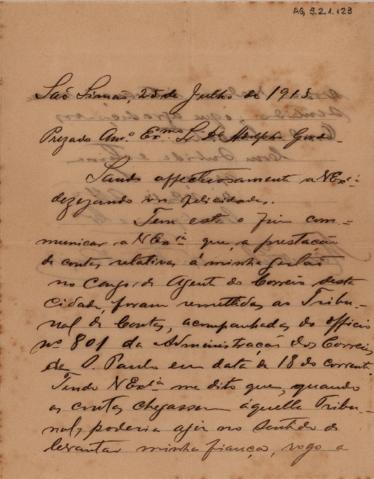 AG, 5.2.1.123
São Simão, 25 de Julho de 1913.
Prezado Amº Exmº Sr. Dr. Adolpho Gordo
Saudo affectuosamente a V Exciª
dezejando-vos felicidades.
Tem esta o fim com-
municar a V Exciª que, a prestação
de contas relativas á minha gestão
no Cargo de Agente do Correio desta
Cidade, foram remettidas ao Tribu-
nal de Contas, acompanhadas do officio
nº 801 da Administração dos Correios
de S. Paulo em data de 18 do corrente.
Tendo V Exciª me dito que, quando
as contas chegassem áquelle Tribu-
nal, poderia agir no sentido de
levantar minha fiança, rogo a